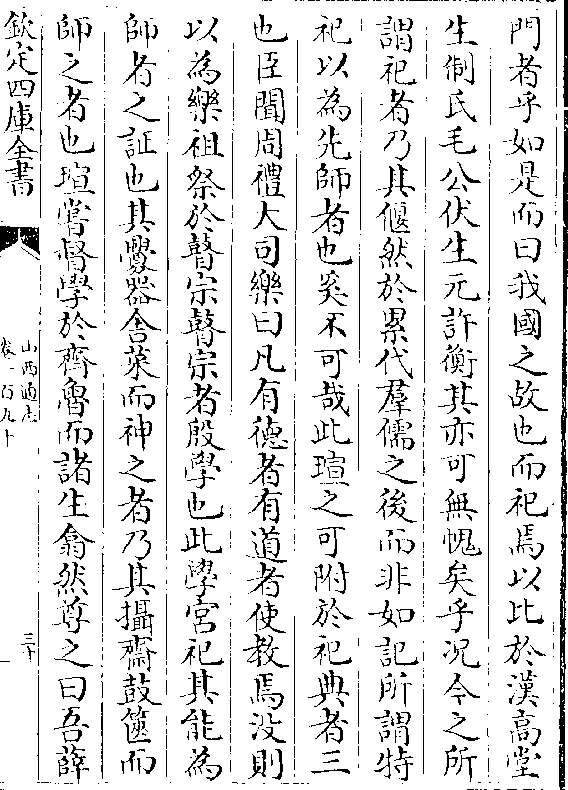 門者乎如是而曰我國之故也而祀焉以比於漢高堂
生制氏毛公伏生元許衡其亦可無愧矣乎况今之所
謂祀者乃其偃然於累代羣儒之後而非如記所謂特
祀以為先師者也奚不可哉此瑄之可附於祀典者三
也臣聞周禮大司樂曰凡有德者有道者使教焉没則
以為樂祖祭於瞽宗瞽宗者殷學也此學宫祀其能為
師者之証也其釁器舍菜而神之者乃其攝齋鼓篋而
師之者也瑄嘗督學於齊魯而諸生翕然尊之曰吾薛
欽定四庫全書
山西通志
卷一百九十
三十